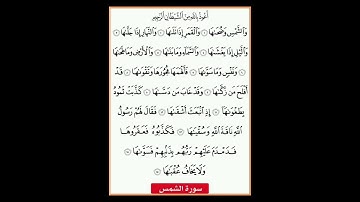 أَعُوذُ بِاللَّهِ مِنَ الشَّيْطَانِ الرَّجِيمِ
وَٱلشَّمْسِ وَضُحَىٰهَا ۝ وَٱلْقَمَرِ إِذَا تَلَىٰهَا ۝ وَٱلنَّهَارِ إِذَا جَلَّىٰهَا ۝
وَٱلَّيْلِ إِذَا يَغْشَىٰهَا ۝ وَٱلسَّمَآءِ وَمَا بَنَىٰهَا ۝ وَٱلْأَرْضِ وَمَا طَحَىٰهَا
۝ وَنَفْسٍ وَمَا سَوَّىٰهَا ۝ فَأَلْهَمَهَا فُجُورَهَا وَتَقْوَىٰهَا ۝ قَدْ
أَفْلَحَ مَن زَكَّىٰهَا ۝ وَقَدْ خَابَ مَن دَسَّىٰهَا ۝ كَذَّبَتْ ثَمُودُ
بِطَغْوَىٰهَآ ۝ إِذِ ٱنۢبَعَثَ أَشْقَىٰهَا ۝ فَقَالَ لَهُمْ رَسُولُ
ٱللَّهِ نَاقَةَ ٱللَّهِ وَسُقْيَىٰهَا ۝ فَكَذَّبُوهُ فَعَقَرُوهَا
فَدَمْدَمَ عَلَيْهِمْ رَبُّهُم بِذَنۢبِهِمْ فَسَوَّىٰهَا ۝
وَلَا يَخَافُ عُقْبَىٰهَا ۝
سورة الشمس